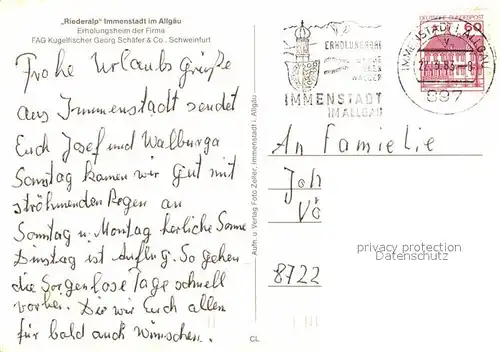 „Riederalp" Immenstadt im Allgäu
Erholungsheim der Firma
FAG Kugelfischer Georg Schäfer & Co., Schweinfurt
Frohe Urlaubs grüße
aus Immenstadt sendet
Euch Josef und Walburga
Samstag kamen wir gut mit
ströhmenden Regen an
Sonntag u. Montag herliche Sonne
Dinstag ist Ausflug. So gehen
die Sorgenlose Tage schnell
vorbei. Die wir Euch allen
für bald auch wünschen.
Aufn. u. Verlag Foto Zeller, Immenstadt i. Allgäu
CL
ERHOLUNGSORT
WASSER
IMMENSTADT
IM ALLGÄU
IMMENSTADT i. ALLGÄU
897
DEUTSCHE BUNDESPOST
60
An Familie
Joh
Vö
8722
privacy protection
Datenschutz